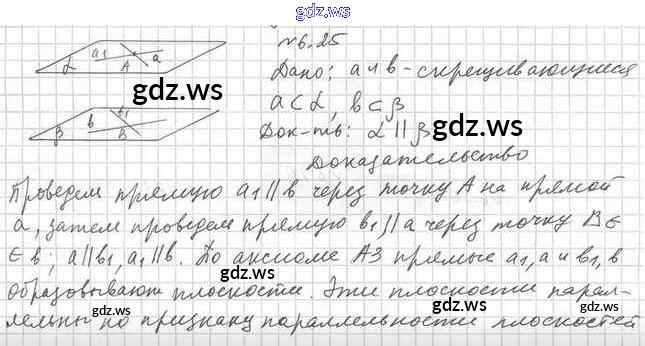 gdz.ws
№6.25
a₁ a
α A
Дано: a и b - скрещивающиеся
gdz.ws
a ⊂ α, b ⊂ β
gdz.ws
b b₁
β B
Док-ть: α || β
gdz.ws
Доказательство
Проведем прямую a₁ || b через точку A на прямой
a, затем проведем прямую b₁ || a через точку B ∈
∈ b; a || b₁, a₁ || b. По аксиоме A3 прямые a₁, a и b₁, b
образовывают плоскости. Эти плоскости парал-
лельны по признаку параллельности плоскостей
gdz.ws
gdz.ws